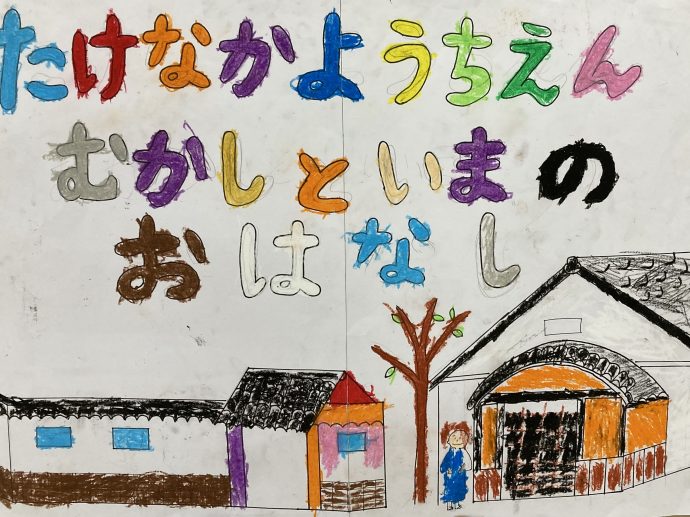 たけなかようちえん
むかしといまの
おはなし